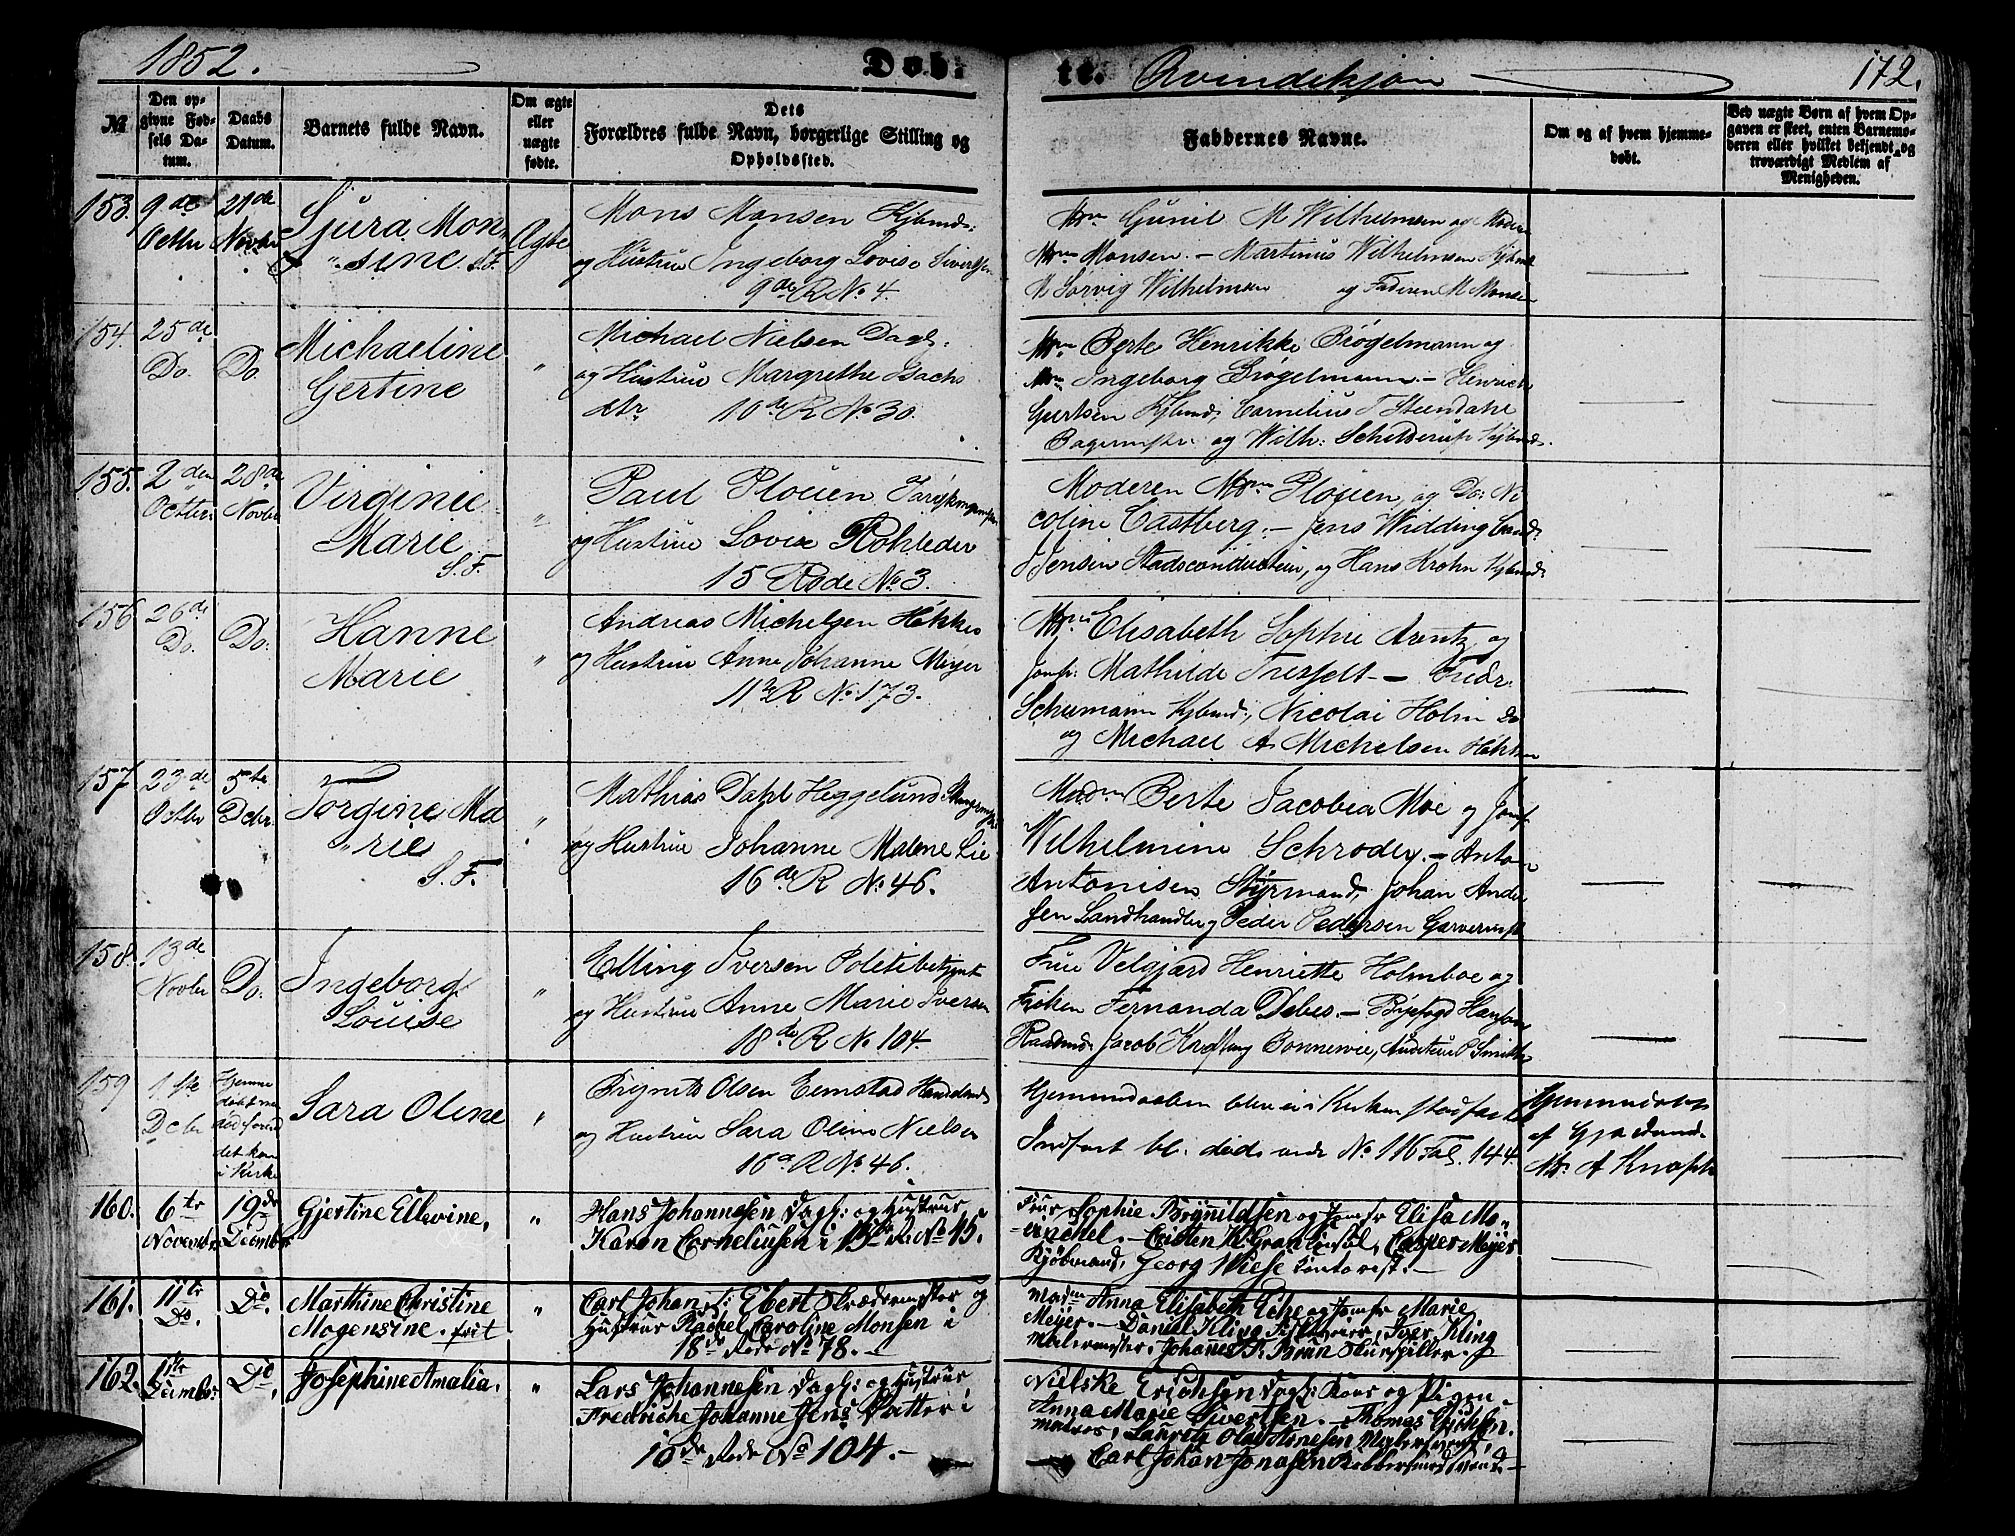 1852.
Døb-
te. Qvindekjøn
172.
№
Den op-
givne Fød-
sels Da-
tum.
Daabs
Datum.
Barnets fulde Navn.
Om ægte
eller
uægte
fødte.
Dets
Forældres fulde Navn, borgerlige Stilling og
Opholdssted.
Faddernes Navne.
Om og af hvem hjemme-
døbt.
Ved uægte Børn af hvem Op-
gaven er skeet, enten Barnemo-
deren eller hvilket bekjendt og
troværdigt Medlem af
Menigheden.
153. 9de Octbr 21de Novbr
Sjura Mon-
sine S.F.
Ægte
Mons Monsen Kjbmd:
og Hustrue Ingeborg Lovise Sivertsen
9de R No 4.
Mdm Gunil M Wilhelmsen og Moder
Mdm Monsen. – Martinus Wilhelmsen Kjbmd
M Sorvig Wilhelmsen og Faderen M Monsen
154. 25de Do. Do.
Michaeline
Gertine
"
Michael Nielsen Dagl.
og Hustrue Margrethe Isachs
dtr 10de R No 30.
Mdm Berte Henrikke Brøgelmann og
Mdm Ingeborg Brøgelmann – Henrich
Gertsen Kjbmd, Cornelius T Steendahl
Bagermster og Wilh: Schilderup Kjbmd.
155. 2den Octbr. 28de Novbr
Virginie
Marie
S.F.
"
Paul Plouen
og Hustrue Lovise Rohleder
15 Rode No 3.
Moderen Mdm Plouen, og Do: Ni
coline Castberg. – Jens Widding
J Jensen Stadsconducteur, og Hans Krohn Kjbmd:
156 26de Do. Do.
Hanne
Marie
"
Andreas Michelsen Høkker
og Hustrue Anne Johanne Meyer
11te R No 173.
Mdm Elisabeth Sophie Arentz og
Jomfr: Mathilde Friis – Fredr.
Schumann Kjbmd:, Nicolai Holm Do
og Michael A Michelsen Høkker
157 23de Octbr 5te Debr.
Torgine Ma
rie
S.F.
"
Mathias Dahl Heggelund
og Hustrue Johanne Malene Lie
16de R No 46.
Madm Berte Jacobia Moe og Jomf
Wilhelmine Schroder. – Anton
Antonisen Styrmand, Johan Ander
sen Landhandler og Peder Pedersen Garvermst
158. 13de Novbr Do.
Ingeborg
Louise
"
Elling Iversen Politibetjent
og Hustrue Anne Marie Iversen
18de R No 104.
Frue Velgjærd Henriette Holmboe og
Frøken Fernanda Debes. – Byefogd Hansen
Raadmd. Jacob Kræfting Bonnevie, Auditeur P Smith
159 1ste Debr Hjemme
døbt
i Kirke
Sara Oline
"
Olsen Eimstad Handelsmd
og Hustrue Sara Oline Nielsen
16de R No 46.
Hjemmedaaben blev ei i Kirken stadfæstet
Indført bl. døde under No 116 Fol. 144.
Hjemmedøbt
af Gjordemd.
Md: A Knoph
160. 6te Novembr. 19de Decembr.
Gjertine Ellevine,
"
Hans Johannesen Dagl: og Hustrue
Karen Corneliusen i 15de R. No 15.
Frue Sophie Brynildsen og Jomfr Elisa Mo-
Kjøbmand, Georg Wiese Contorist. –
161. 11te Do. Do.
Marthine Christine
Mogensine. frit
"
Carl Johan T: Ebert Skrædermester og
Hustrue Rachel Caroline Monsen i
18de Rode No 78. –
Madm Anna Elisabeth Eche og Jomfr Marie
Meyer. – Daniel Kling Fiskeveier, Iver Kling
Malermester, Johanes T. Brun Skuespiller.
162. 1ste Decembr. Do,
Josephine Amalia.
"
Lars Johannesen Dagl: og Hustrue
Fredriche Johanne Jens Datter i
16de Rode No 104. –
Nielske Erichsen Dagl: Kone og Pigen
Anna Marie Sivertsen. – Thomas Erichsen
matros, Lauritz Olai Arnesen Malersvend,
Carl Johan Jonasen Kobbersmedsvend –